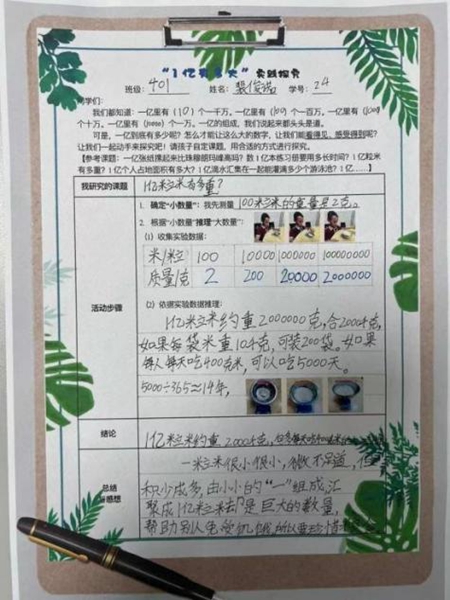 “1亿有多大”实践探究
班级：401 姓名：裴俊诺 学号：24
同学们：
我们都知道：一亿里有（10）个一千万。一亿里有（100）个一百万。一亿里有（1000）
个十万。一亿里有（10000）个一万。一亿的组成，我们说起来都头头是道。
可是，一亿到底有多少呢？怎么才能让这么大的数字，让我们能看得见、感受得到呢？
让我们一起动手来探究吧！请孩子自定课题，用合适的方式进行探究。
【参考课题：一亿张纸摞起来比珠穆朗玛峰高吗？数1亿本练习册要用多长时间？1亿粒米
有多重？1亿个人占地面积有多大？1亿滴水汇集在一起能灌满多少个游泳池？1亿……】
我研究的课题 1亿粒米有多重？
1. 确定“小数量”：我先测量 100粒米的重量是2克。
2. 根据“小数量”推理“大数量”：
（1）收集实验数据：
米/粒 100 10000 1000000 100000000
质量/克 2 200 20000 2000000
活动步骤
（2）依据实验数据推理：
1亿粒米约重2000000克，合2000千克，
如果每袋米重10千克，可装200袋。如果
每人每天吃400克米，可以吃5000天。
5000÷365≈14年，
结论 1亿粒米约重2000千克，
总结
与感想
一粒米很小很小，微不足道，但
积少成多，由小小的“一”组成，汇
聚成1亿粒米却是巨大的数量，
帮助别人免受饥饿，所以要珍惜